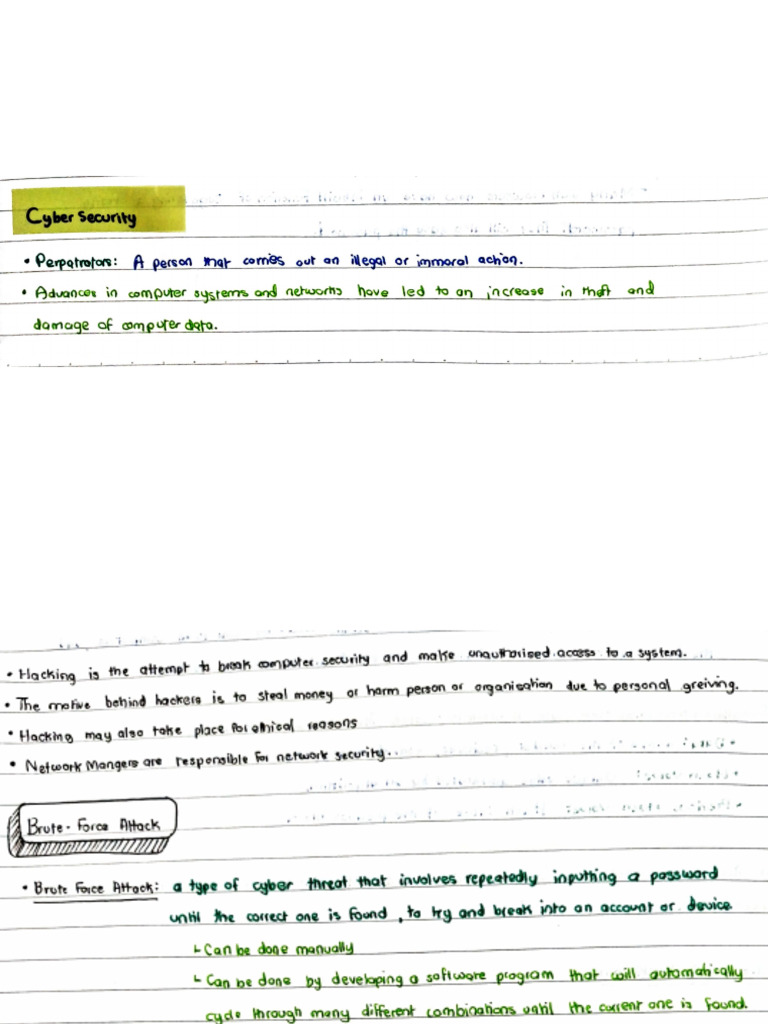 Cyber Security
• Perpatrators: A person that carries out an illegal or immoral action.
• Advances in computer systems and networks have led to an increase in theft and
damage of computer data.
• Hacking is the attempt to break computer security and make unauthorised access to a system.
• The motive behind hackers is to steal money or harm person or organisation due to personal greiving.
• Hacking may also take place for ethical reasons
• Network Mangers are responsible for network security.
Brute-Force Attack
• Brute Force Attack: a type of cyber threat that involves repeatedly inputting a password
until the correct one is found, to try and break into an account or device.
↳ Can be done manually
↳ Can be done by developing a software program that will automatically
cycle through many different combinations until the current one is found.